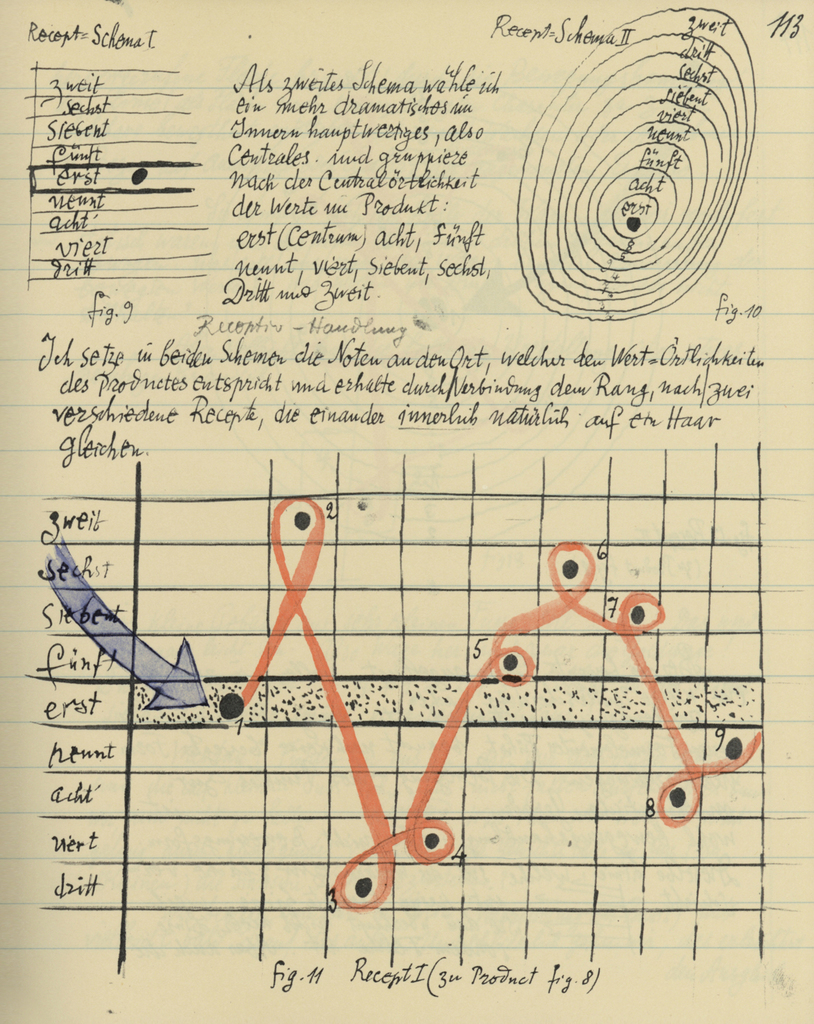 113
Recept=Schema I
zweit
sechst
siebent
fünft
erst
nennt
acht
viert
dritt
fig. 9
Als zweites Schema wähle ich
ein mehr dramatisches im
Innern hauptwertiges, also
Centrales. und gruppiere
Nach der Centralörtlichkeit
der Werte im Produkt:
erst (Centrum) acht, fünft
nennt, viert, siebent, sechst,
Dritt und Zweit.
Recept=Schema II
zweit
dritt
sechst
siebent
viert
nennt
fünft
acht
erst
fig. 10
Receptiv-Handlung
Ich setze in beiden Schemen die Noten an den Ort, welcher den Wert=Örtlichkeiten
des Productes entspricht und erhalte durch Verbindung dem Rang, nach zwei
verschiedene Recepte, die einander innerlich natürlich auf ein Haar
gleichen.
zweit
sechst
siebent
fünft
erst
nennt
acht
viert
dritt
2
6
7
5
1
9
8
4
3
fig. 11 Recept I (zu Product fig. 8)